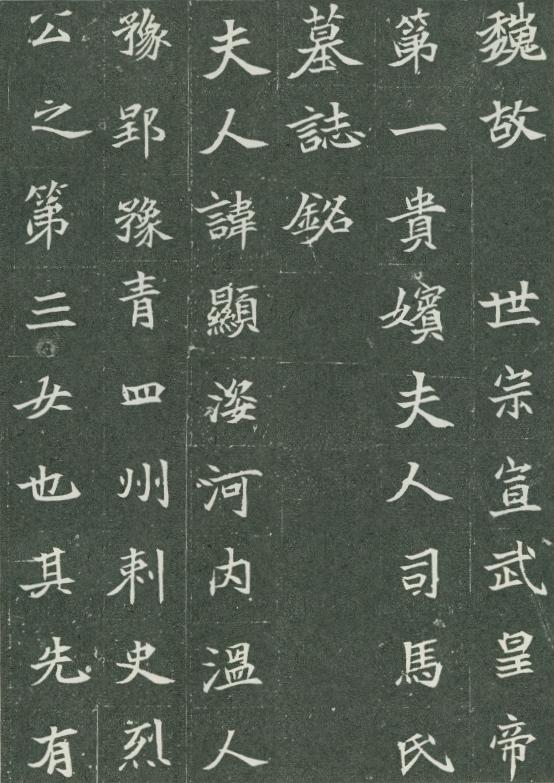 魏故　世宗宣武皇帝
第一貴嬪夫人司馬氏
墓誌銘
夫人諱顯姿河内温人
豫郢豫青四州刺史烈
公之第三女也其先有